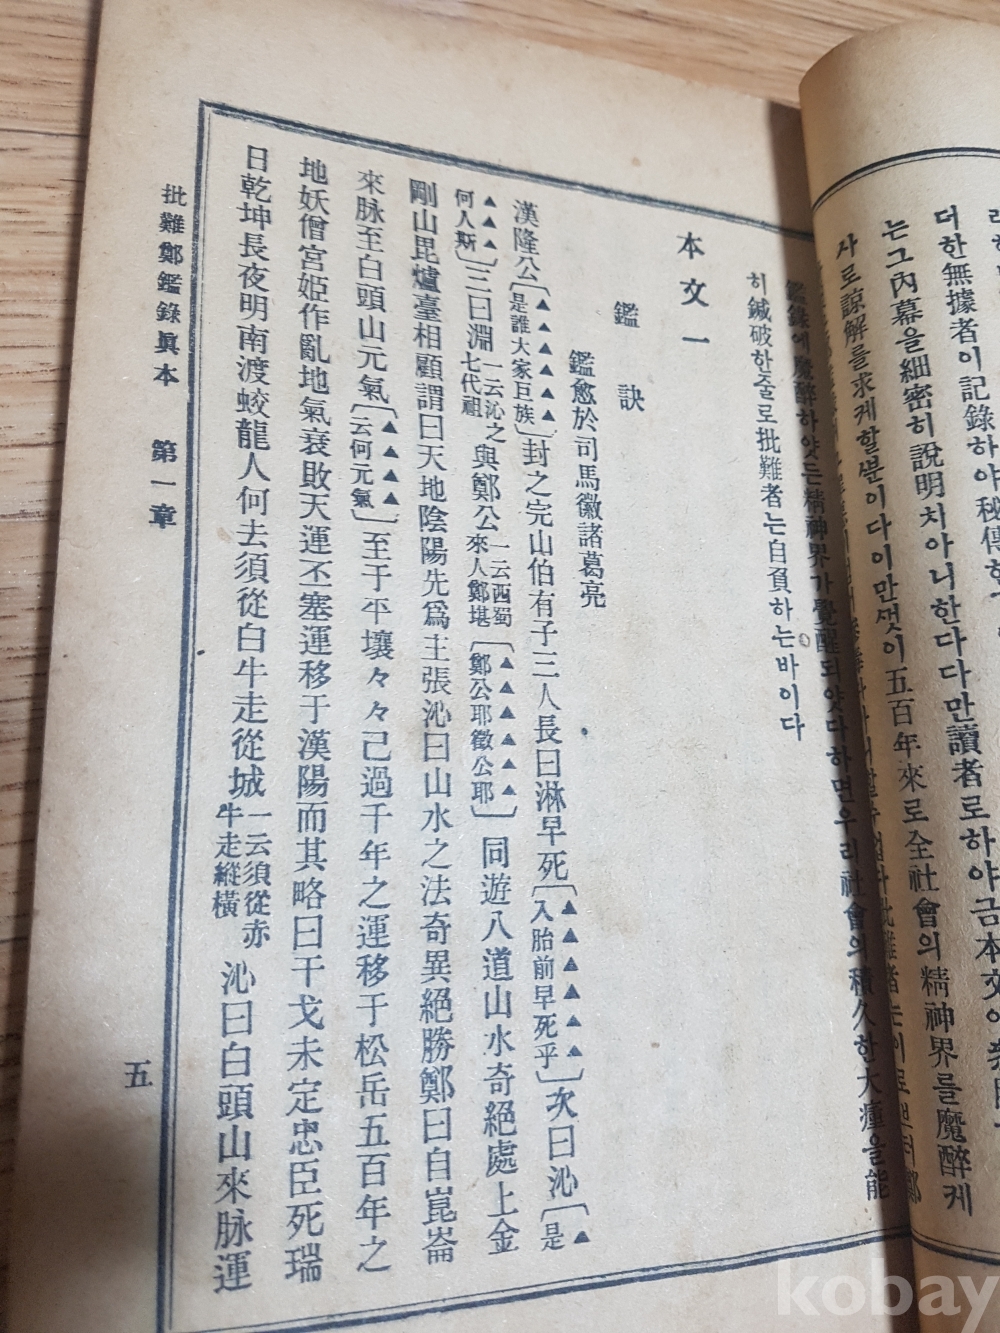 더한無據者이記錄하야秘傳
는그內幕을細密히說明치아니한다다만讀者로하야금本文
사로諒解를求케할분이다이만셋이五百年來로全社會의精神界를魔醉케
鑑錄에魔醉하얏든精神界가覺醒되얏다하면우리社會의積久한大瘇을能
히鍼破한줄로批難者는自負하는바이다
本文一
鑑訣
鑑愈於司馬徽諸葛亮
漢隆公〔是誰大家巨族〕封之完山伯有子三人長曰淋早死〔入胎前早死乎〕次曰沁〔是
何人斯〕三曰淵一云沁之七代祖與鄭公一云西蜀來人鄭堪〔鄭公耶徵公耶〕同遊八道山水奇絕處上金
剛山毘爐臺相顧謂曰天地陰陽先爲主張沁曰山水之法奇異絕勝鄭曰自崑崙
來脉至白頭山元氣〔云何元氣〕至于平壤々々已過千年之運移于松岳五百年之
地妖僧宮姬作亂地氣衰敗天運丕塞運移于漢陽而其略曰干戈未定忠臣死瑞
日乾坤長夜明南渡蛟龍人何去須從白牛走從城一云須從赤牛走縱橫沁曰白頭山來脉運
批難鄭鑑錄眞本 第一章
五
kobay